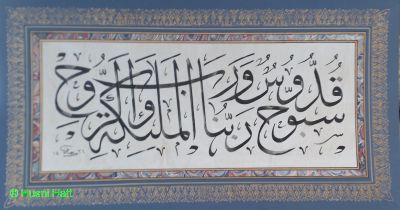 سبوح قدوس ربنا ورب الملئكة والروح
© Husni Hatt